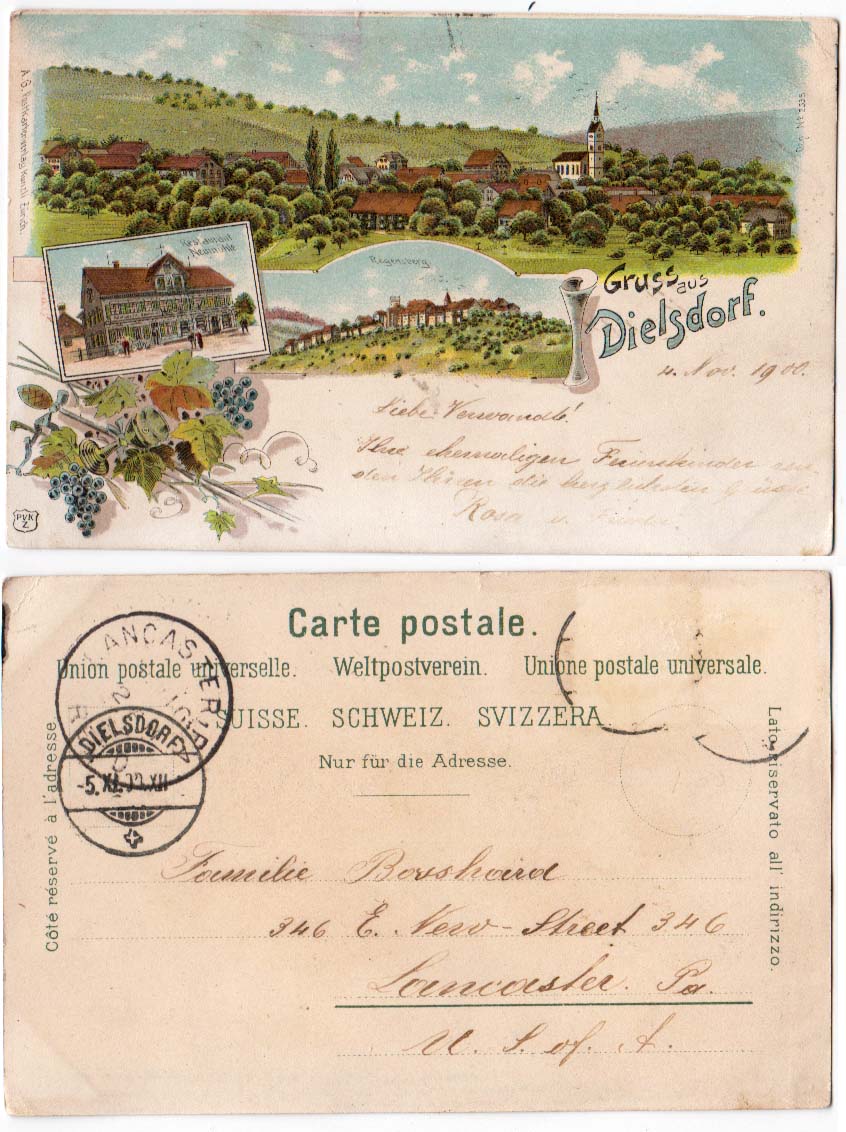 A. G. Postkartenverlag Künzli Zürich.
Nº 2335
Restaurant
Neumühle
Regensberg
Gruss aus
Dielsdorf.
4. Nov. 1900.
Liebe Verwandte!
Ihre ehemaligen
den die herzlichsten
Rosa
PVK
Z
Carte postale.
Union postale universelle. Weltpostverein. Unione postale universale.
SUISSE. SCHWEIZ. SVIZZERA.
Nur für die Adresse.
Côté réservé à l'adresse.
Lato riservato all' indirizzo.
LANCASTER, P
DIELSDORF
-5.XI.00.XII
Familie Bosshard
346 E. New-Street 346
Lancaster. Pa.
U. S. of. A.